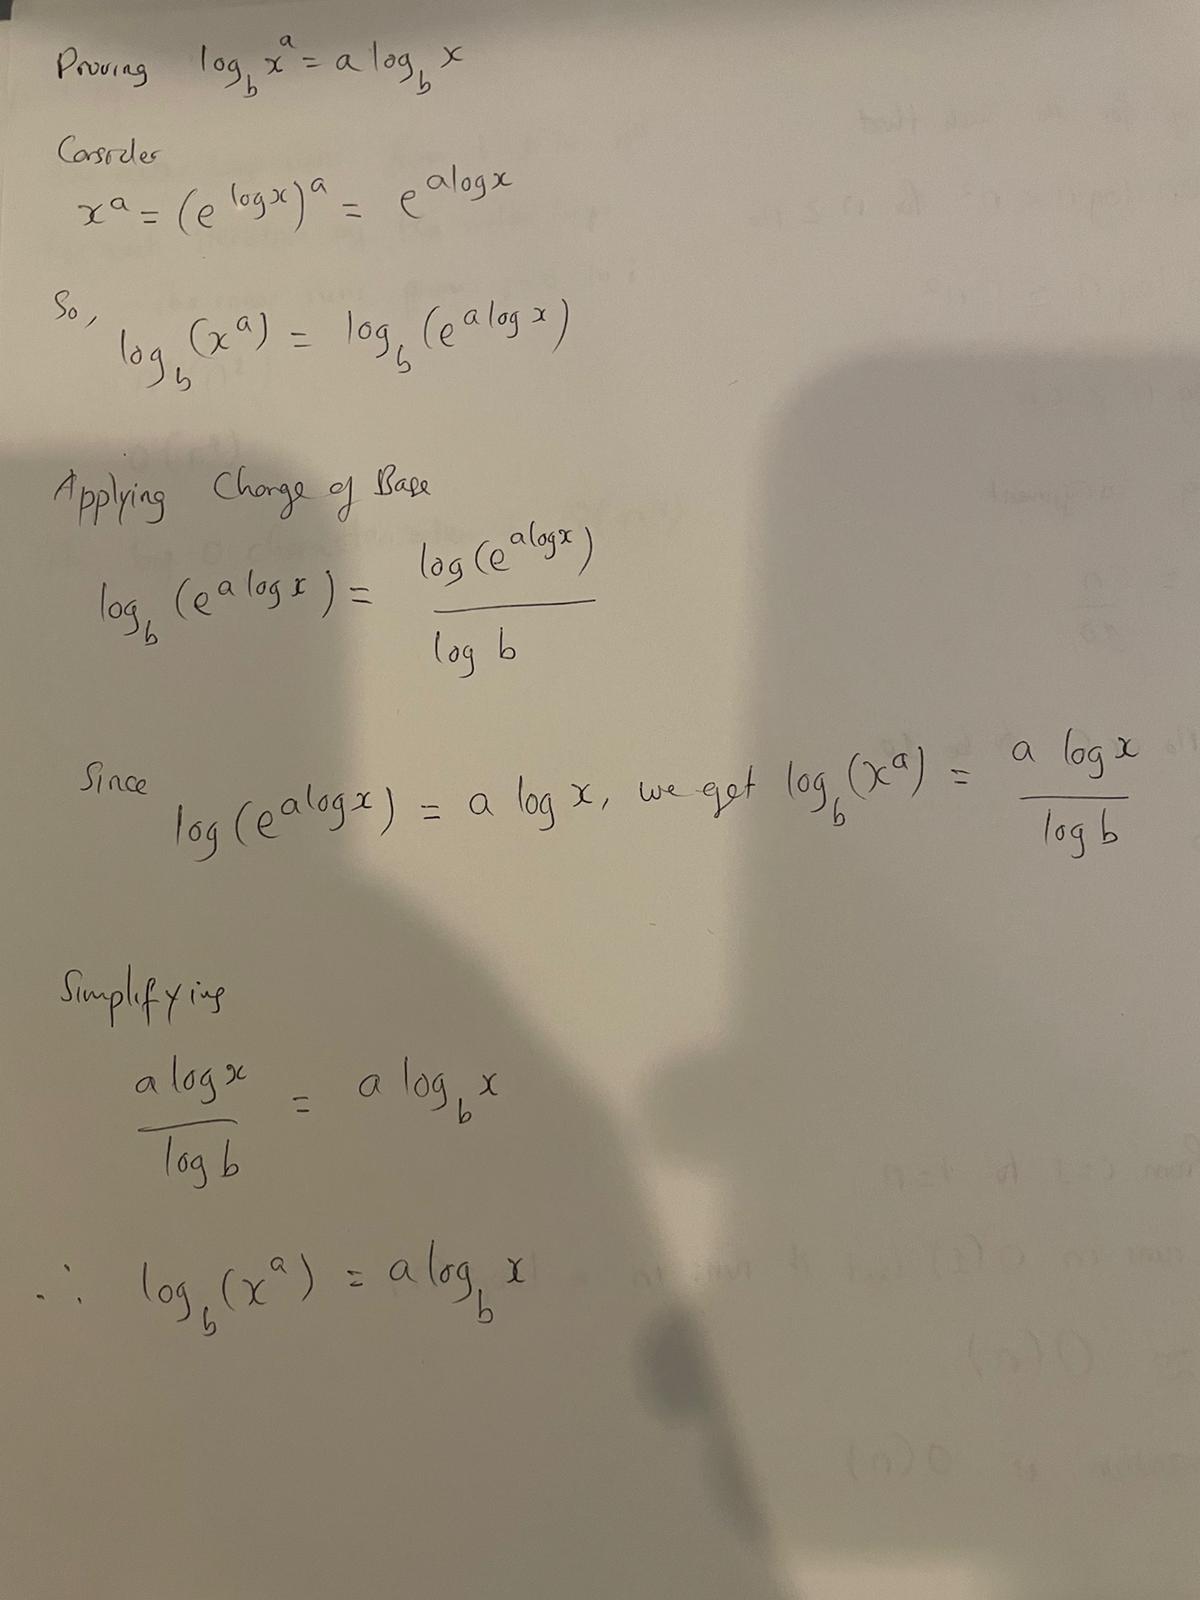 Proving log_b x^a = a log_b x
Consider
x^a = (e^{log x})^a = e^{a log x}
So,
log_b (x^a) = log_b (e^{a log x})
Applying Change of Base
log_b (e^{a log x}) = log (e^{a log x}) / log b
Since log (e^{a log x}) = a log x, we get log_b (x^a) = a log x / log b
Simplifying
a log x / log b = a log_b x
∴ log_b (x^a) = a log_b x